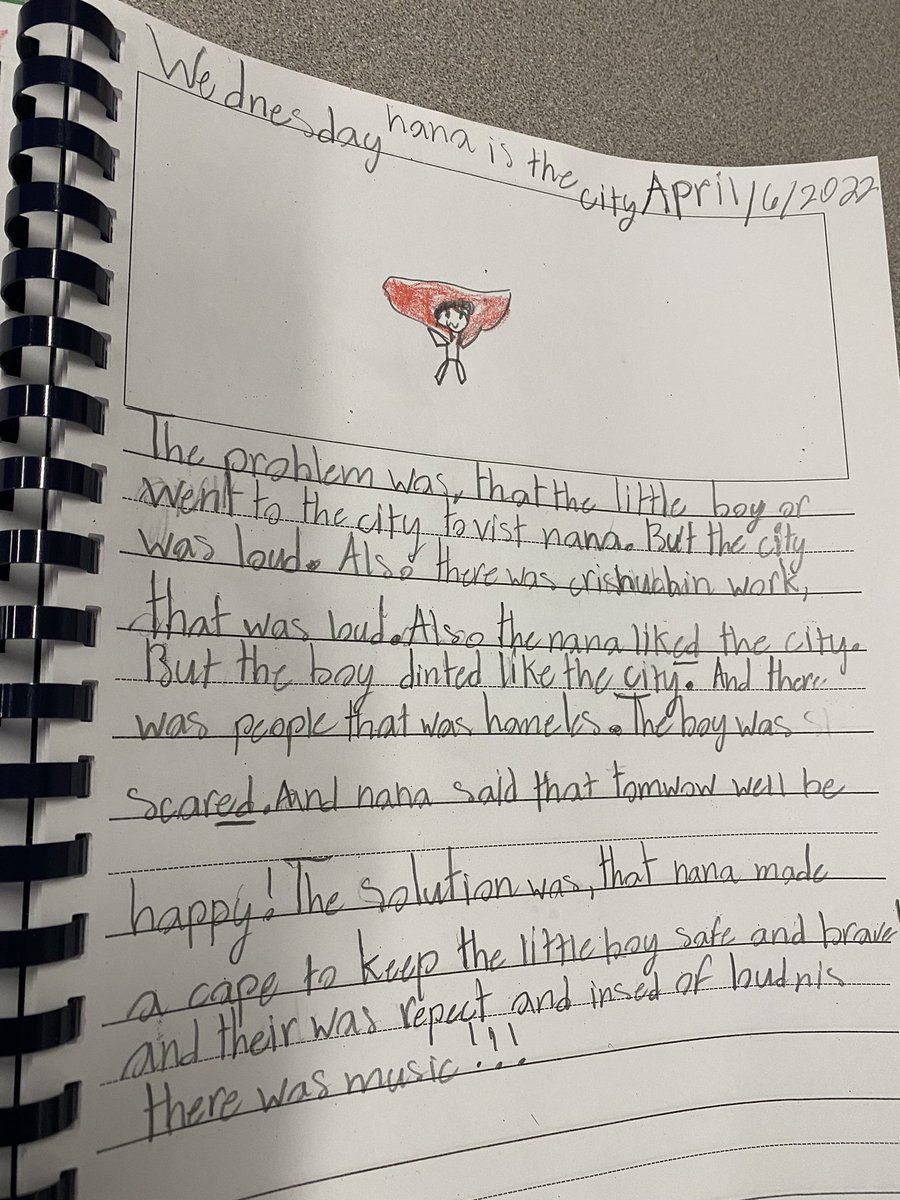 Wednesday nana is the city April/6/2022
The problem was, that the little boy or
went to the city to vist nana. But the city
was loud. Also there was crishubbin work,
that was loud. Also the nana liked the city.
But the boy dinted like the city. And there
was people that was homels. The boy was
scared. Aand nana said that tomwow well be
happy! The solution was, that nana made
a cape to keep the little boy safe and brave!
and their was repect and insed of loudnis
there was music!!!